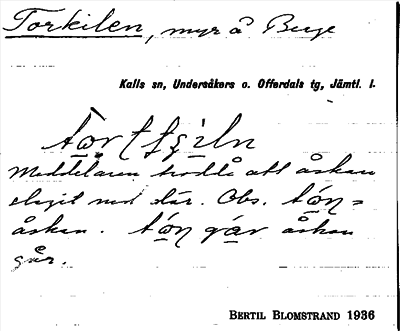 Torkilen, myr å Berge
Kalls sn, Undersåkers o. Offerdals tg, Jämtl. l.
Meddelaren trodde att åskan
slagit ned där. Obs. tón =
åskan. tón går åskan
går.
BERTIL BLOMSTRAND 1936